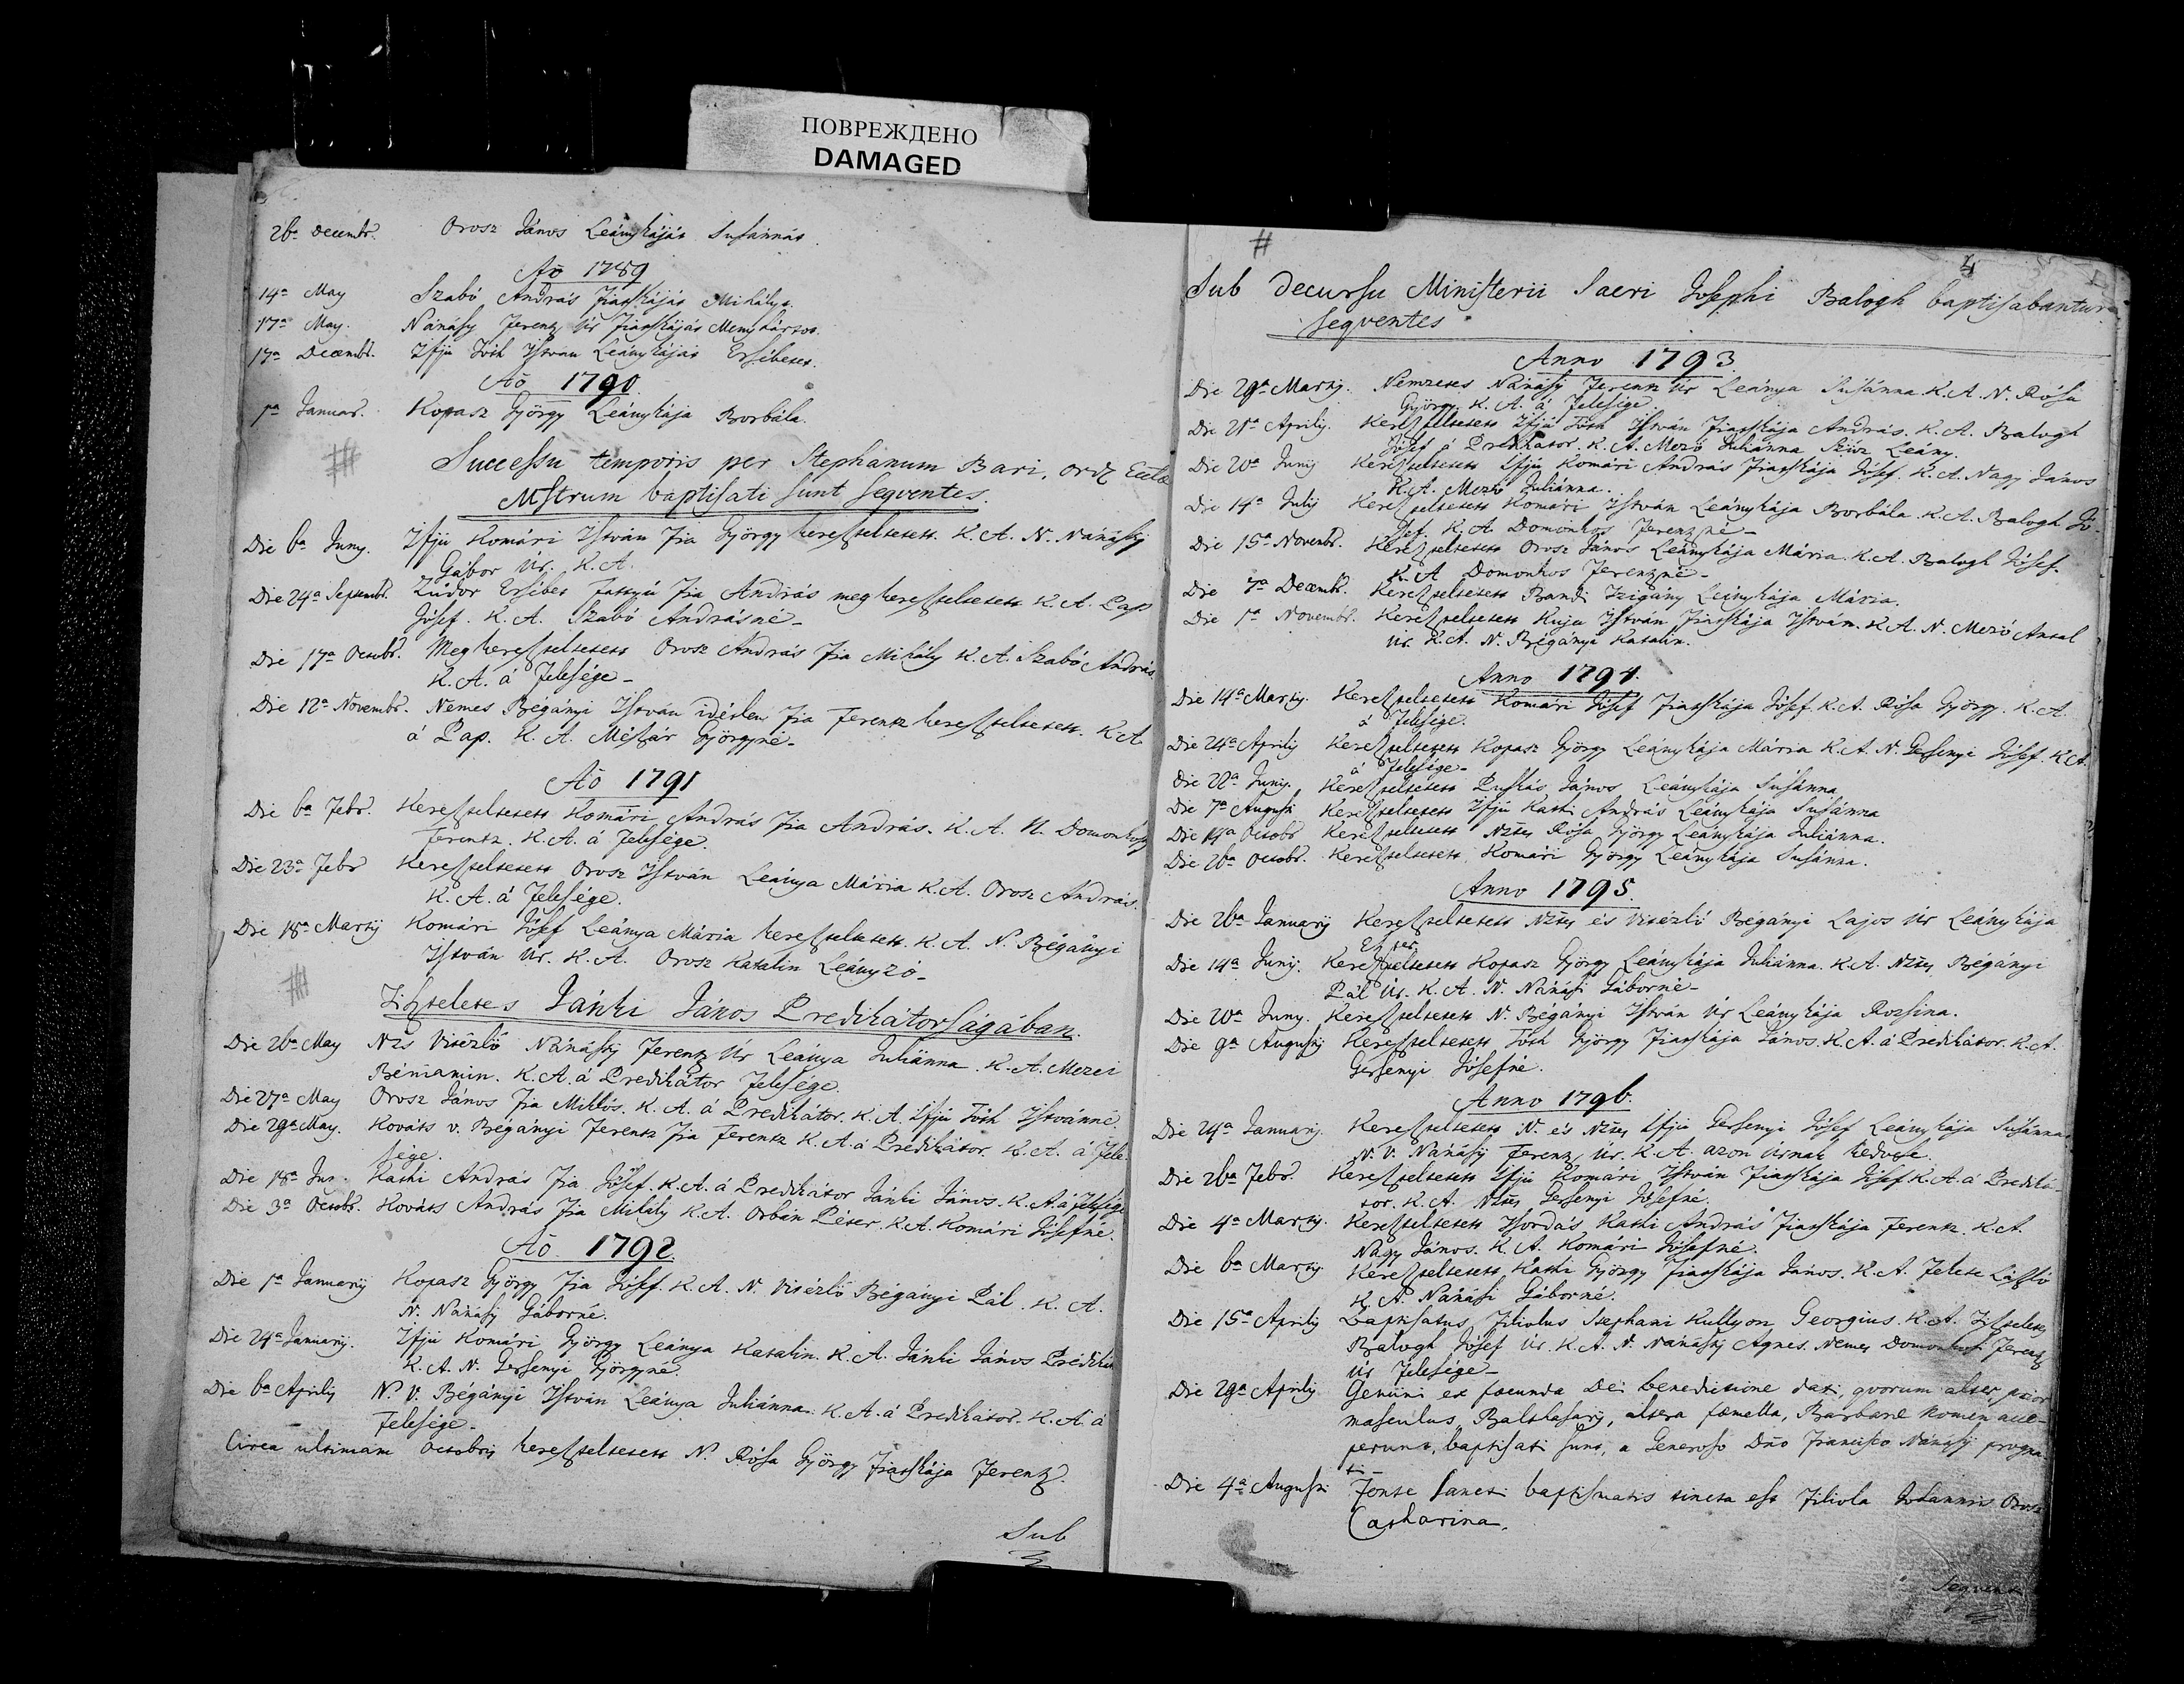 ПОВРЕЖДЕНО
DAMAGED
26a Decembr. Orosz János Leánykáját Susánnát.
Aō 1789
14a May Szabó András Fiatskáját Mihályt.
17a May. Nánásy Ferentz Úr Fiatskáját Menyhártot.
17a Decembr. Ifjú Tóth István Leánykáját Ersébetet.
Aō 1790
7a Januar. Kopasz György Leánykája Borbála.
Successu temporis per Stephanum Bari, ordz Eccle
Mstrum baptisati sunt seqventes.
Die 6a Juny. Ifjú Komári István Fia György kereszteltetett. K.A. N. Nánássy
Gábor Úr. K.A.
Die 24a Septembr. Zúdor Ersébet Fattyú Fia András meg kereszteltetett K.A. Pap
Jósef. K.A. Szabó Andrásné-
Die 17a Octobr. Meg kereszteltetett Orosz András Fia Mihály K.A. Szabó András
K.A. á Felesége-
Die 12a Novembr. Nemes Bégányi István idétlen Fia Ferentz kereszteltetett. K.A.
á Pap. K.A. Mészár Györgyné-
Aō 1791
Die 6a Febr. Kereszteltetett Komári András Fia András. K.A. N. Domonkos
Ferentz. K.A. á Felesége.
Die 23a Febr Kereszteltetett Orosz István Leánya Mária K.A. Orosz András.
K.A. á Felesége.
Die 18a Martij Komári Jósef Leánya Mária kereszteltetett. K.A. N. Bégányi
István Úr. K.A. Orosz Katalin Leányzó-
Tiszteletes Jánki János Predikátorságában.
Die 26a May Nzs Vitézlő Nánássy Ferentz Úr Leánya Juliánna. K.A. Mezei
Béniamin. K.A. á Predikátor Felesége.
Die 27a May Orosz János Fia Miklós. K.A. á Predikátor. K.A. Ifjú Tóth Istvánné.
Die 29a May. Kováts v. Bégányi Ferentz Fia Ferentz K.A. á Predikátor. K.A. á Fele
sége.
Die 18a Jun. Katki András Fia Jósef. K.A. á Predikátor Jánki János. K.A. á Felesége
Die 3a Octobr. Kováts András Fia Mihály K.A. Orbán Péter. K.A. Komári Jósefné.
Aō 1792.
Die 1a Januarij Kopasz György Fia Jósef. K.A. N. Vitézlő Bégányi Pál. K.A.
N. Nánásy Gáborné.
Die 24a Januarij. Ifjú Komári György Leánya Katalin. K.A. Jánki János Prédikát
K.A. N. Gersenyi Györgyné.
Die 6a Aprilij N. V. Bégányi István Leánya Juliánna. K.A. á Predikátor. K.A. á
Felesége-
Circa ultimam Octobrij kereszteltetett N. Rósa György Fiatskája Ferentz.
Sub
4
Sub Decursu Ministerii Sacri Josephi Balogh baptisabantur
seqventes
Anno 1793.
Die 29a Martij. Nemzetes Nánásy Ferentz Úr Leánya Susánna. K.A. N. Rósa
György. K.A. á Felesége
Die 21a Aprilij. Kereszteltetett Ifjú Tóth István Fiatskája András. K.A. Balogh
Jósef á Predikator. K.A. Mező Juliánna Szűz Leány.
Die 20a Junij Kereszteltetett Ifjú Komári András Fiatskája Jósef. K.A. Nagy János
K.A. Mező Juliánna.
Die 14a Julij Kereszteltetett Komári István Leánykája Borbála. K.A. Balogh Jó-
sef. K.A. Domonkos Ferentzné-
Die 15a Novembr. Kereszteltetett Orosz János Leánykája Mária. K.A. Balogh Jósef.
K.A Domonkos Ferentzné-
Die 7a Decembr. Kereszteltetett Bandi Tzigány Leánykája Mária.
Die 1a Novembr. Kereszteltetett Kuju István Fiatskája István. K.A. N. Mező Antal
Úr. K.A. N. Bégányi Katalin.
Anno 1794.
Die 14a Martij. Kereszteltetett Komári Jósef Fiatskája Jósef. K.A. Rósa György. K.A.
á Felesége.
Die 24a Aprilij Kereszteltetett Kopasz György Leánykája Mária K.A. N. Gersenyi Jósef. K.A.
á Felesége-
Die 22a Junij. Kereszteltetett Puskás János Leánykája Susánna
Die 7a Augusti Kereszteltetett Ifjú Katki András Leánykája Susánna
Die 19a Octobr Kereszteltetett Nztes Rósa György Leánykája Juliánna.
Die 26a Octobr. Kereszteltetett Komári György Leánykája Susánna.
Anno 1795.
Die 26a Januarij Kereszteltetett Nztes és Vitézlő Bégányi Lajos Úr Leánykája
Eszter
Die 14a Junij. Kereszteltetett Kopasz György Leánykája Juliánna. K.A. Nztes Bégányi
Pál Úr. K.A. N. Nánási Gáborné-
Die 20a Juny. Kereszteltetett N. Bégányi István Úr Leánykája Rozsina.
Die 9a Augustij Kereszteltetett Tóth György Fiatskája János. K.A. á Predikátor. K.A.
Gersenyi Jósefné.
Anno 1796.
Die 24a Januarij. Kereszteltetett N. és Nztes Ifjú Gersenyi Jósef Leánykája Susánna
N. V. Nánásy Ferentz Úr. K.A. azon Úrnak kedvese.
Die 26a Febr. Kereszteltetett Ifjú Komári István Fiatskája Jósef K.A. á Prediká-
tor. K.A. Nztes Gersenyi Jósefné.
Die 4a Martij. Kereszteltetett Tsordás Katki András Fiatskája Ferentz. K.A.
Nagy János. K.A. Komári Jósefné.
Die 6a Martij. Kereszteltetett Katki György Fiatskája János. K.A. Fekete László
K.A. Nánási Gáborné.
Die 15a Aprilij Baptisatus Filiolus Stephani Kullyon Georgius. K.A. Tiszteletes
Balogh Jósef Úr. K.A. N. Nánássy Agnes. Nemes Domonkos Ferentz
Úr Felesége-
Die 29a Aprilij Gemini ex fecunda Dei benedictione dati, qvorum alter prior
masculus Balthasarij, altera fæmella, Barbaræ nomen acce-
perunt, baptisati sunt, a Generoso Dño Francisco Nánásy progna
ti-
Die 4a Augusti Fonte Sancti baptismatis tincta est Filiola Johannis Orosz
Catharina.
Seqvent